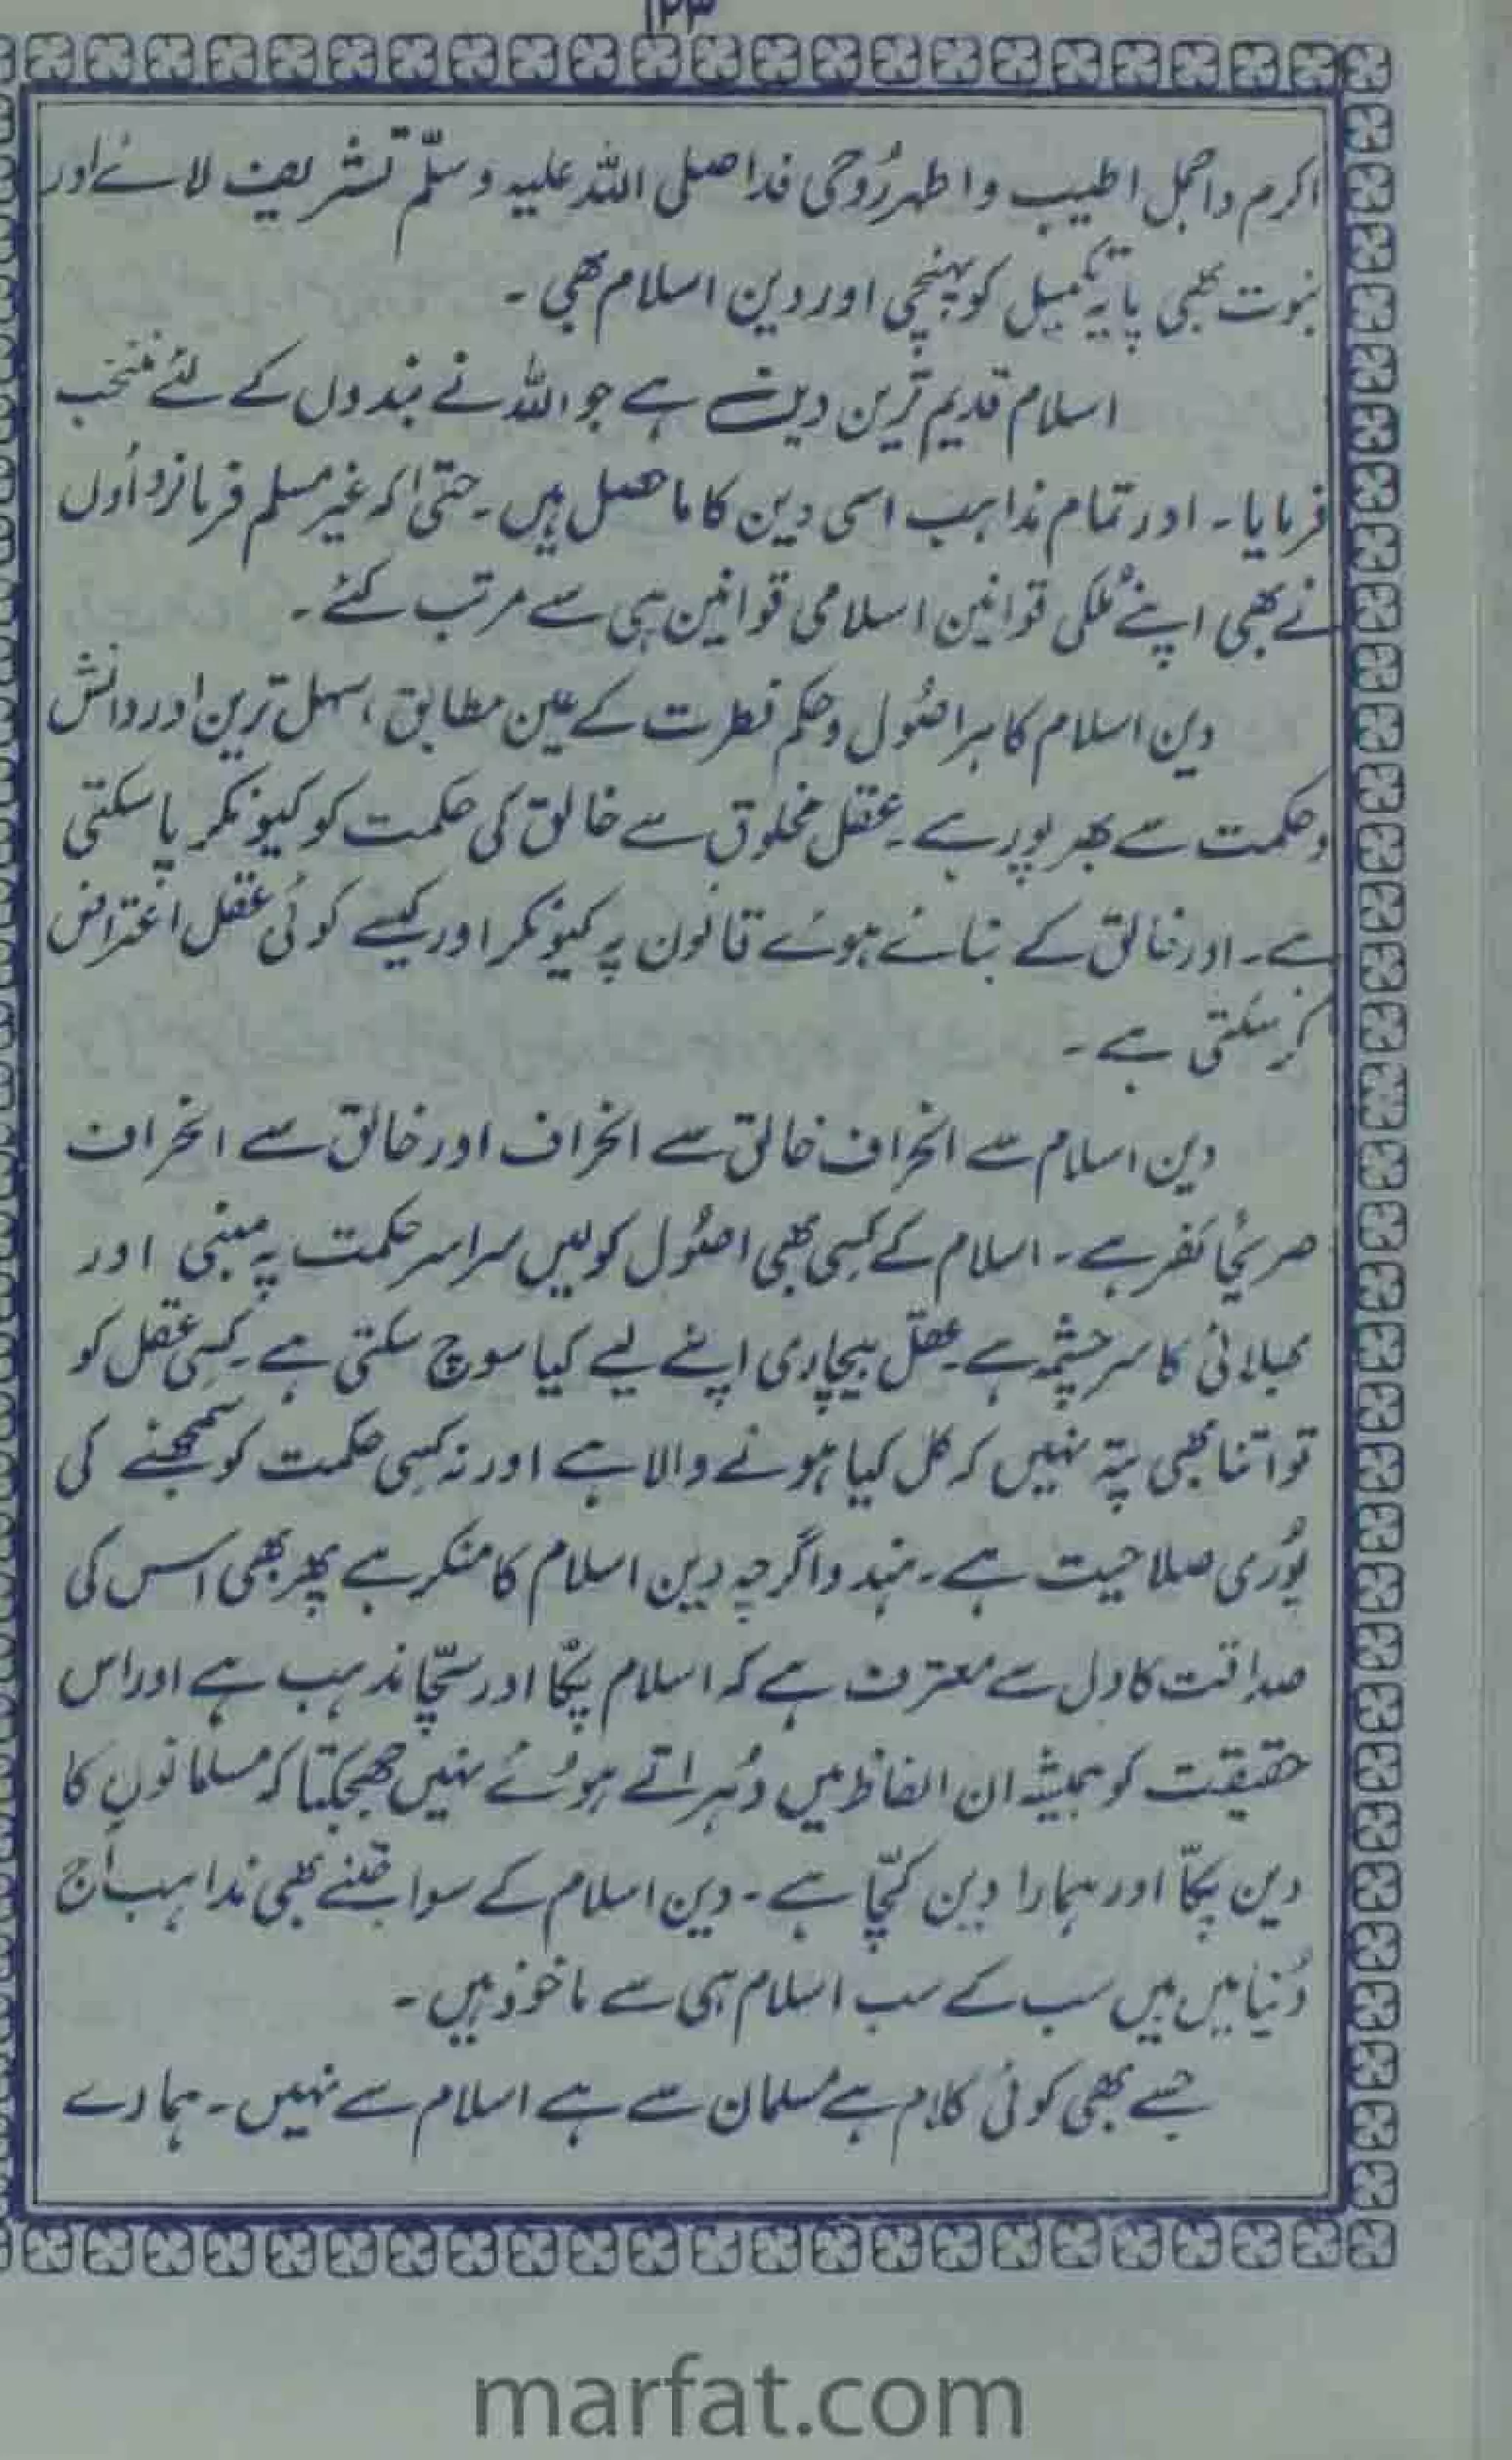 ۱۲۳
اکرم واجمل اطیب واطہر رُوحی فدا صلی اللہ علیہ وسلّم تشریف لائے اور
نبوت بھی پایۂ تکمیل کو پہنچی اور دین اسلام بھی ۔
اسلام قدیم ترین دین ہے جو اللہ نے بندوں کے لئے منتخب
فرمایا ۔ اور تمام مذاہب اسی دین کا ماحصل ہیں ۔ حتّیٰ کہ غیر مسلم فرمانرواؤں
نے بھی اپنے مُلکی قوانین اسلامی قوانین ہی سے مرتب کئے ۔
دین اسلام کا ہر اصُول وحکم فطرت کے عین مطابق ، سہل ترین اور دانش
وحکمت سے بھر پور ہے ۔ عقل مخلوق ہے خالق کی حکمت کو کیونکر پا سکتی
ہے ۔ اور خالق کے بنائے ہوئے قانون پہ کیونکر اور کیسے کوئی عقل اعتراض
کر سکتی ہے ۔
دین اسلام سے انحراف خالق سے انحراف اور خالق سے انحراف
صریحًا کفر ہے ۔ اسلام کے کسی بھی اصُول کو لیں سراسر حکمت پہ مبنی اور
بھلائی کا سرچشمہ ہے ۔ عقل بیچاری اپنے لیے کیا سوچ سکتی ہے ۔ کسی عقل کو
تو اتنا بھی پتہ نہیں کہ کل کیا ہونے والا ہے اور نہ کسی حکمت کو سمجھنے کی
پُوری صلاحیت ہے ۔ ہندو اگرچہ دین اسلام کا منکر ہے پھر بھی اس کی
صداقت کا دل سے معترف ہے کہ اسلام پکّا اور سچّا مذہب ہے اور اس
حقیقت کو ہمیشہ ان الفاظ میں دُہراتے ہوئے نہیں جھجکتا کہ مسلمانوں کا
دین پکّا اور ہمارا دین کچّا ہے ۔ دین اسلام کے سوا جتنے بھی مذاہب آج
دُنیا میں ہیں سب کے سب اسلام ہی سے ماخوذ ہیں ۔
جسے بھی کوئی کلام ہے مسلمان سے ہے اسلام سے نہیں ۔ ہمارے
marfat.com